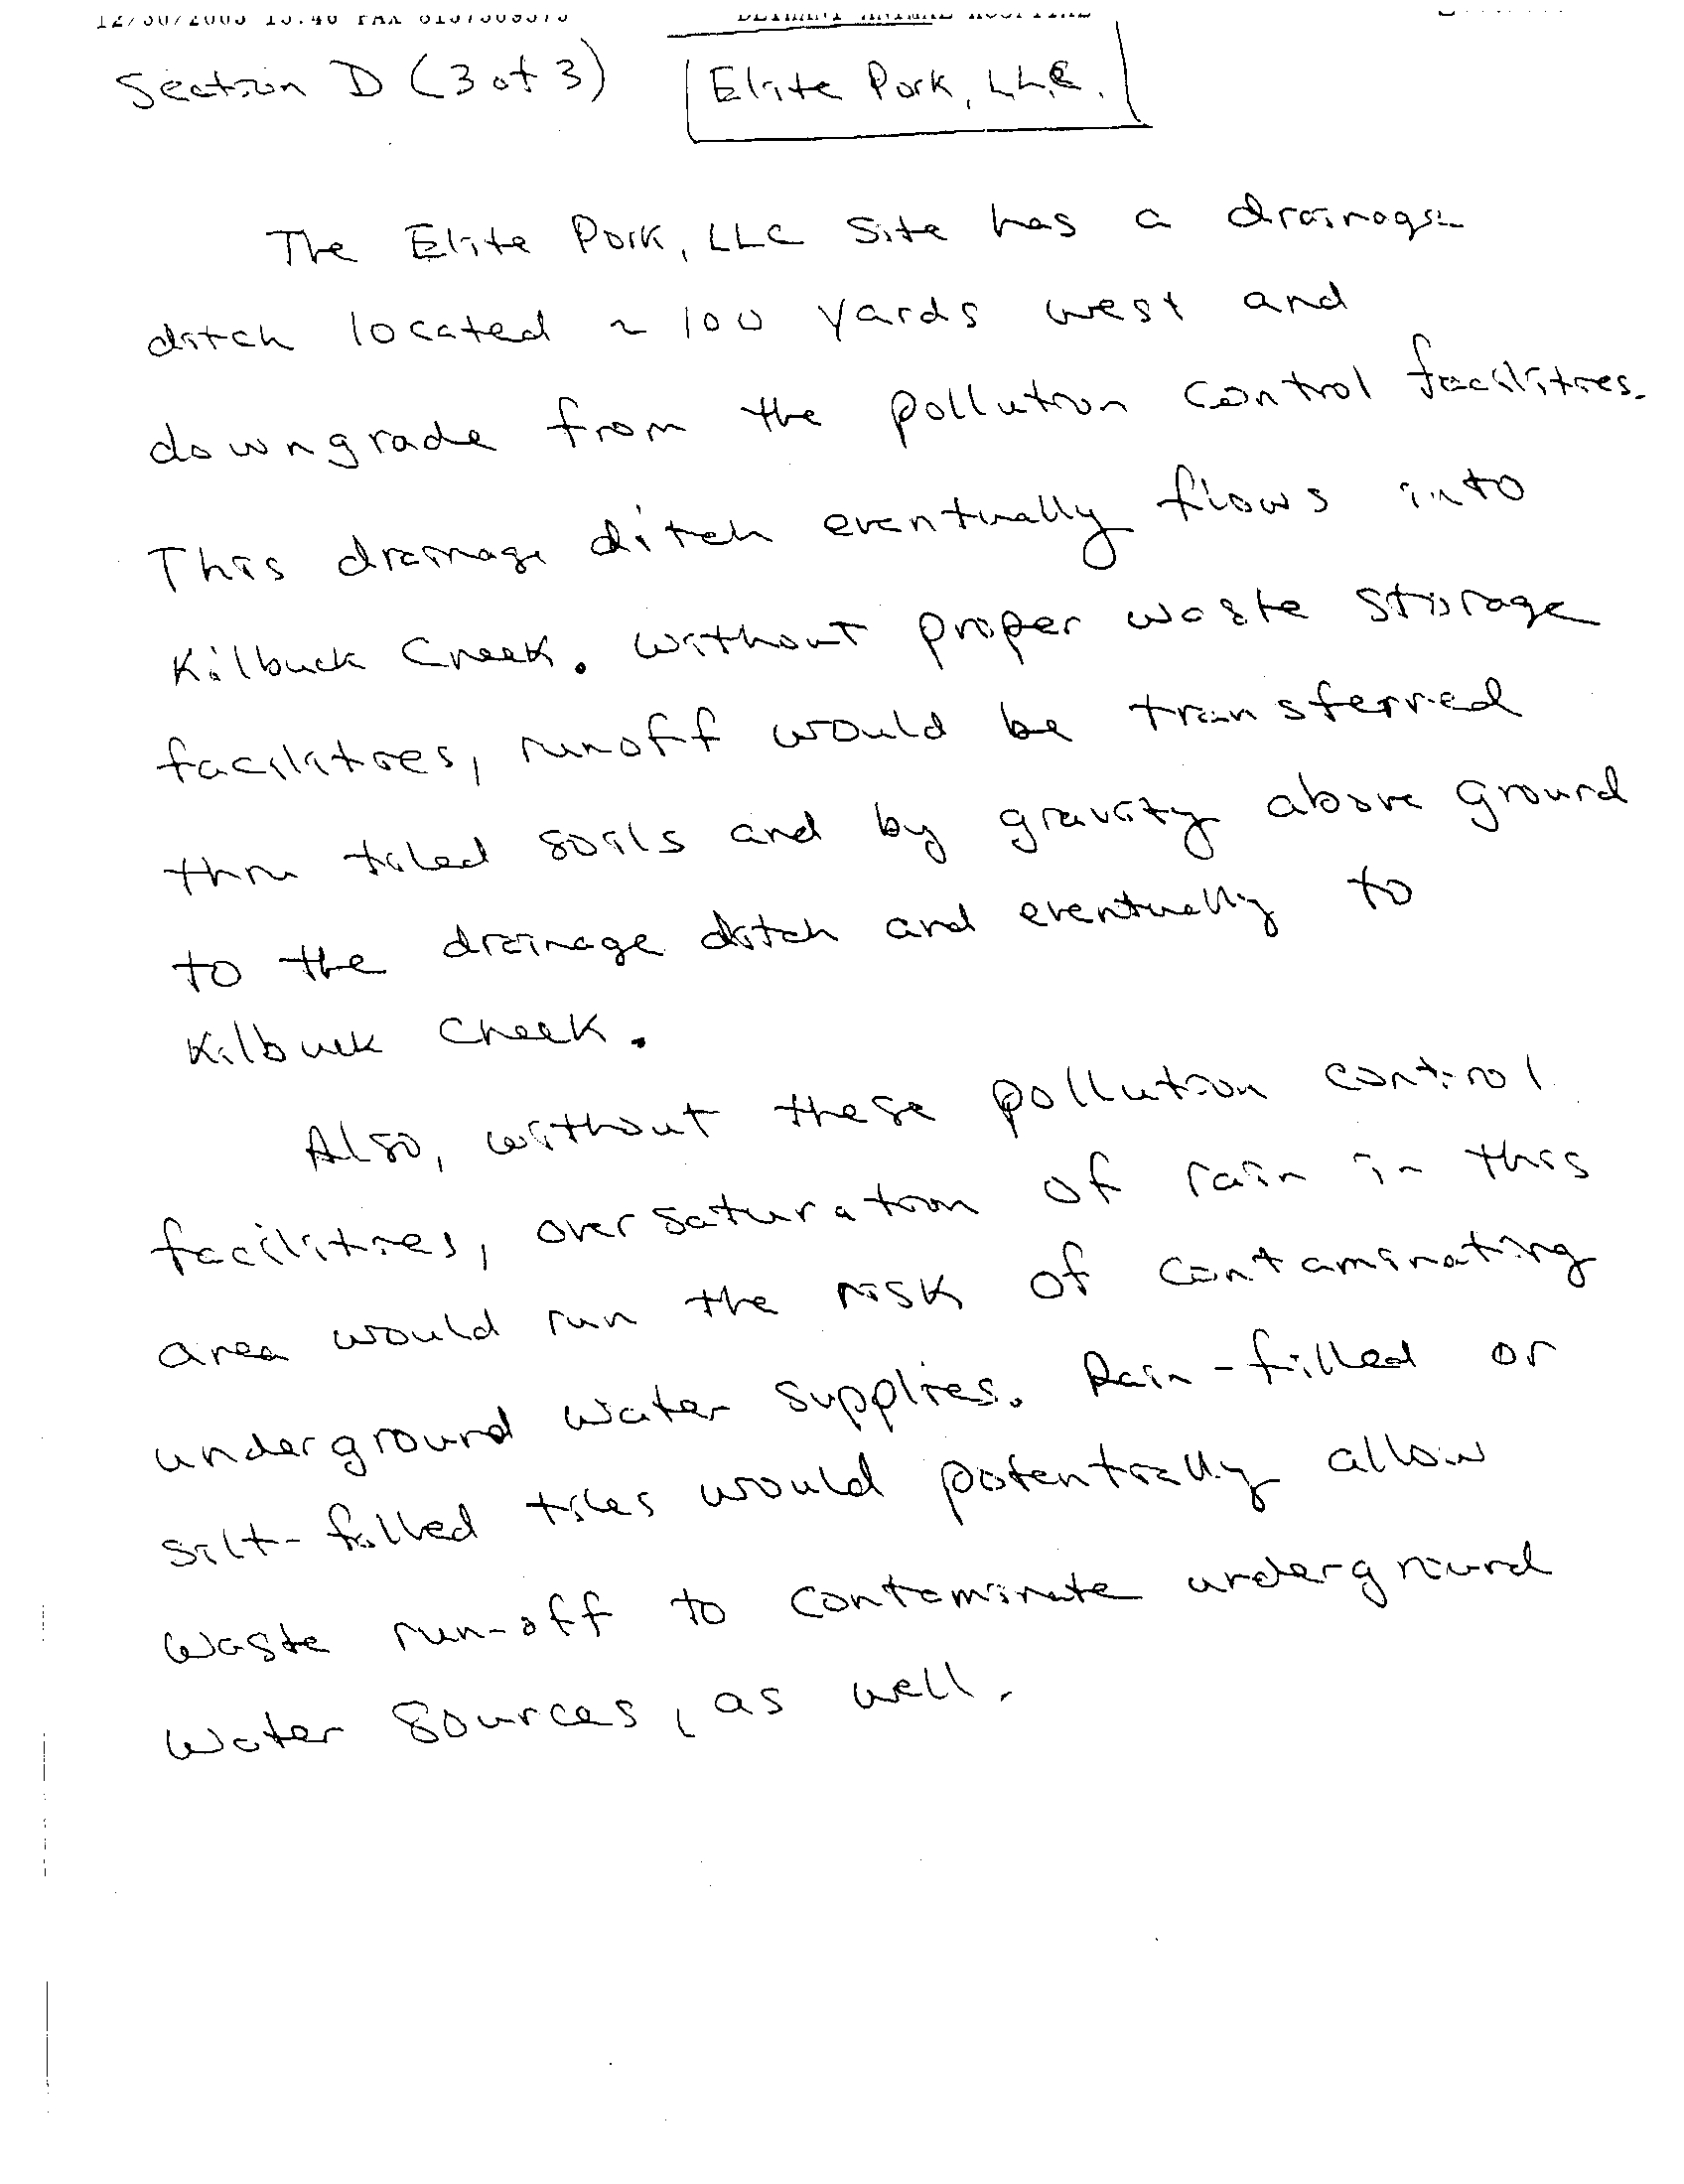 Section D (3 of 3) Elite Pork, LLC.
The Elite Pork, LLC Site has a drainage
ditch located ~ 100 yards west and
downgrade from the pollution control facilities.
This drainage ditch eventually flows into
Kilbuck Creek. Without proper waste storage
facilities, runoff would be transferred
thru tiled soils and by gravity above ground
to the drainage ditch and eventually to
Kilbuck Creek.
Also, without these pollution control
facilities, over saturation of rain in this
area would run the risk of contaminating
underground water supplies. Rain-filled or
silt-filled tiles would potentially allow
waste run-off to contaminate underground
water sources, as well.